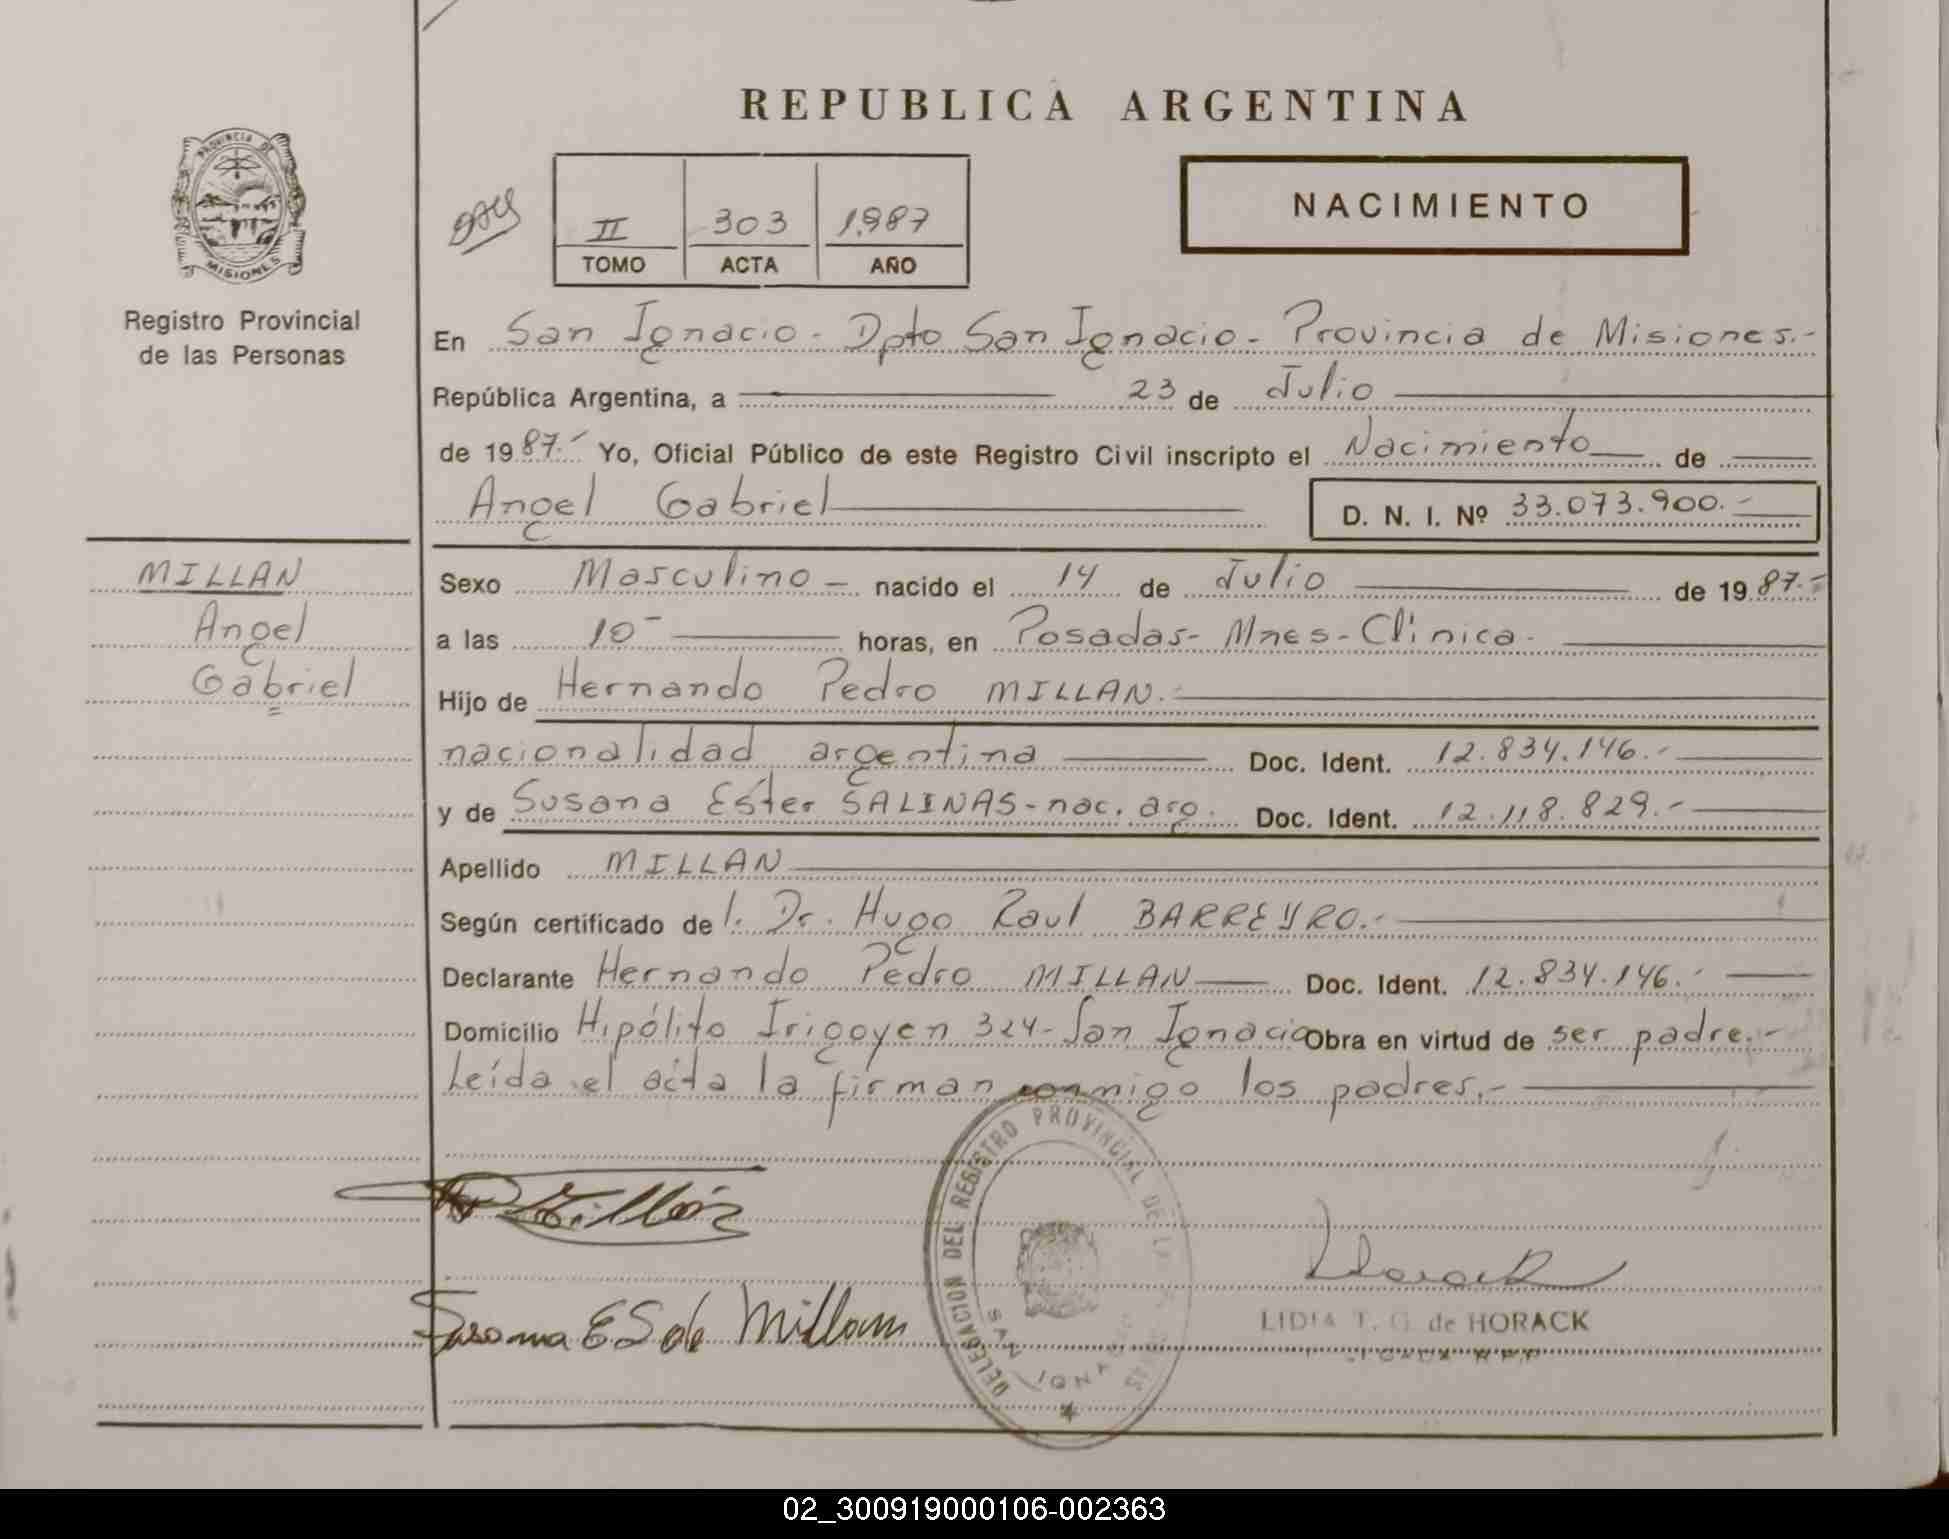 REPUBLICA ARGENTINA
PROVINCIA DE
MISIONES
Registro Provincial
de las Personas
II 303 1.987
TOMO ACTA AÑO
NACIMIENTO
En San Ignacio - Dpto San Ignacio - Provincia de Misiones.-
República Argentina, a 23 de Julio
de 1987.- Yo, Oficial Público de este Registro Civil inscripto el Nacimiento de
Angel Gabriel D. N. I. Nº 33.073.900.-
MILLAN
Angel
Gabriel
Sexo Masculino - nacido el 14 de Julio de 1987.-
a las 10 - horas, en Posadas - Mnes - Clínica -
Hijo de Hernando Pedro MILLAN.-
nacionalidad argentina Doc. Ident. 12.834.146.-
y de Susana Ester SALINAS - nac. arg. Doc. Ident. 12.118.829.-
Apellido MILLAN
Según certificado de l. Dr. Hugo Raul BARREYRO.-
Declarante Hernando Pedro MILLAN Doc. Ident. 12.834.146.-
Domicilio Hipólito Irigoyen 324 - San Ignacio Obra en virtud de ser padre.-
Leída el acta la firman conmigo los padres.-
Millán
Susana E S de Millan
DELEGACION DEL REGISTRO PROVINCIAL DE LAS
SAN IGNACIO
Horack
LIDIA T. G. de HORACK
02_300919000106-002363